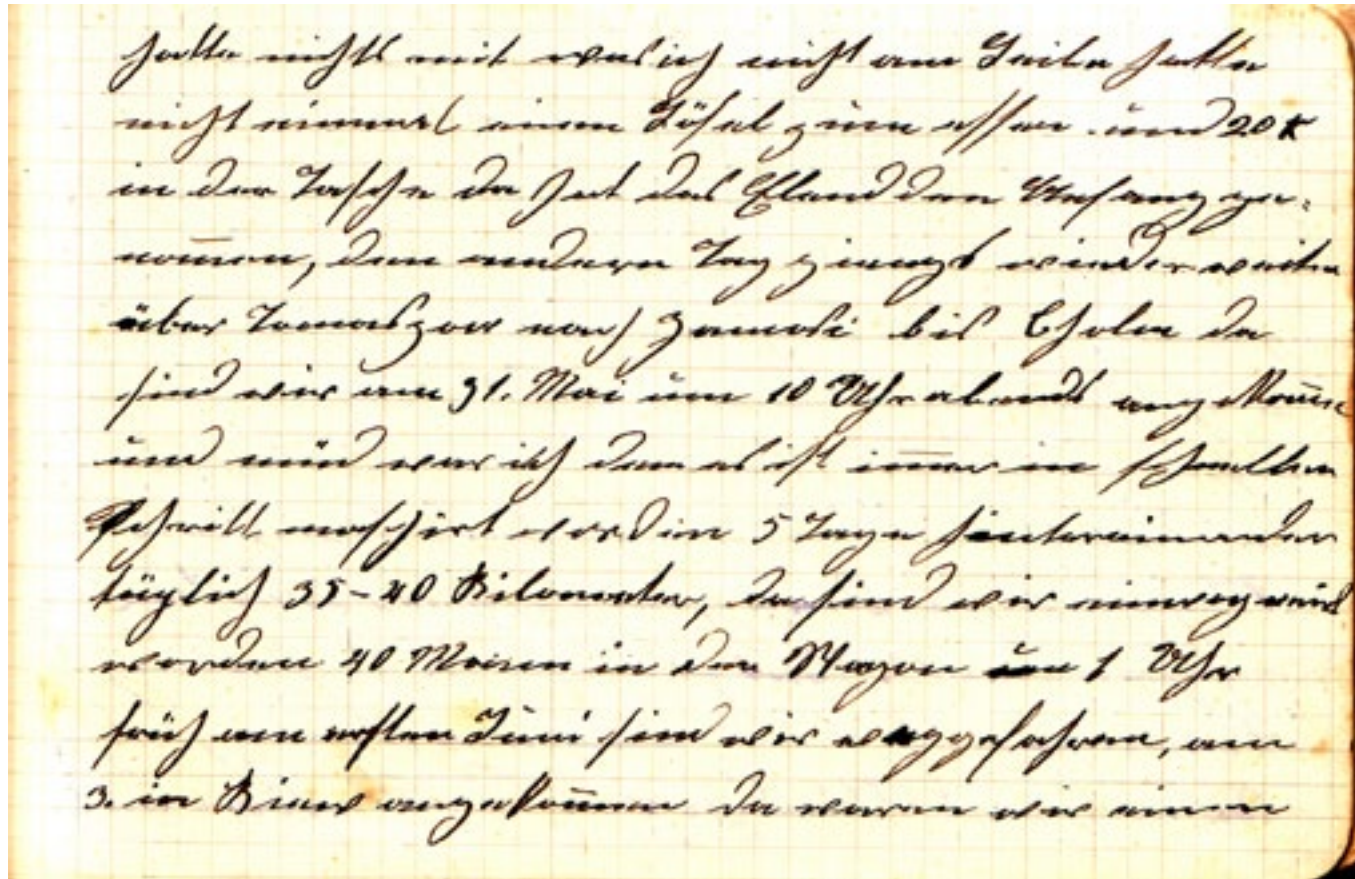 hatte nichts mit was ich nicht am Leibe hatte
nicht einmal einen Löfel zum essen und 20 K
in der Tasche da hat das Elend den Anfang ge-
nom̅en, den andern Tag giengs wieder weiter
über Tomaszow nach Zamosc bis Cholm da
sind wir am 31. Mai um 10 Uhr abends angekom̅en
und müd war ich den es ist im̅er im schnellen
Schritt maschirt worden 5 Tage hintereinander
täglich 35-40 Kilometer, da sind wir einwagonirt
worden 40 Man̅ in den Wagon um 1 Uhr
früh am ersten Juni sind wir weggefahren, am
3. in Kiew angekom̅en da waren wir einen